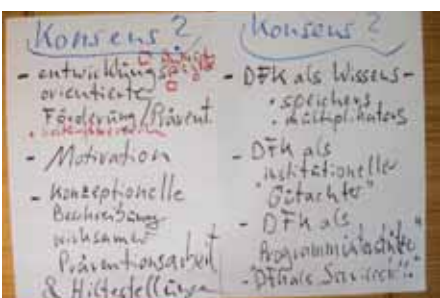 Konsens?
- entwicklungs
orientierte
Förderung/Prävent.
- Motivation
- Konzeptionelle
Beschreibung
wirksamer
Präventionsarbeit
& Hilfestellungen
Konsens?
- DFK als Wissens-
• speichers
• multiplikators
- DFK als
"institutioneller
Gutachter"
- DFK als
"Programmwerkstätte"
- "DFK als Servicest."